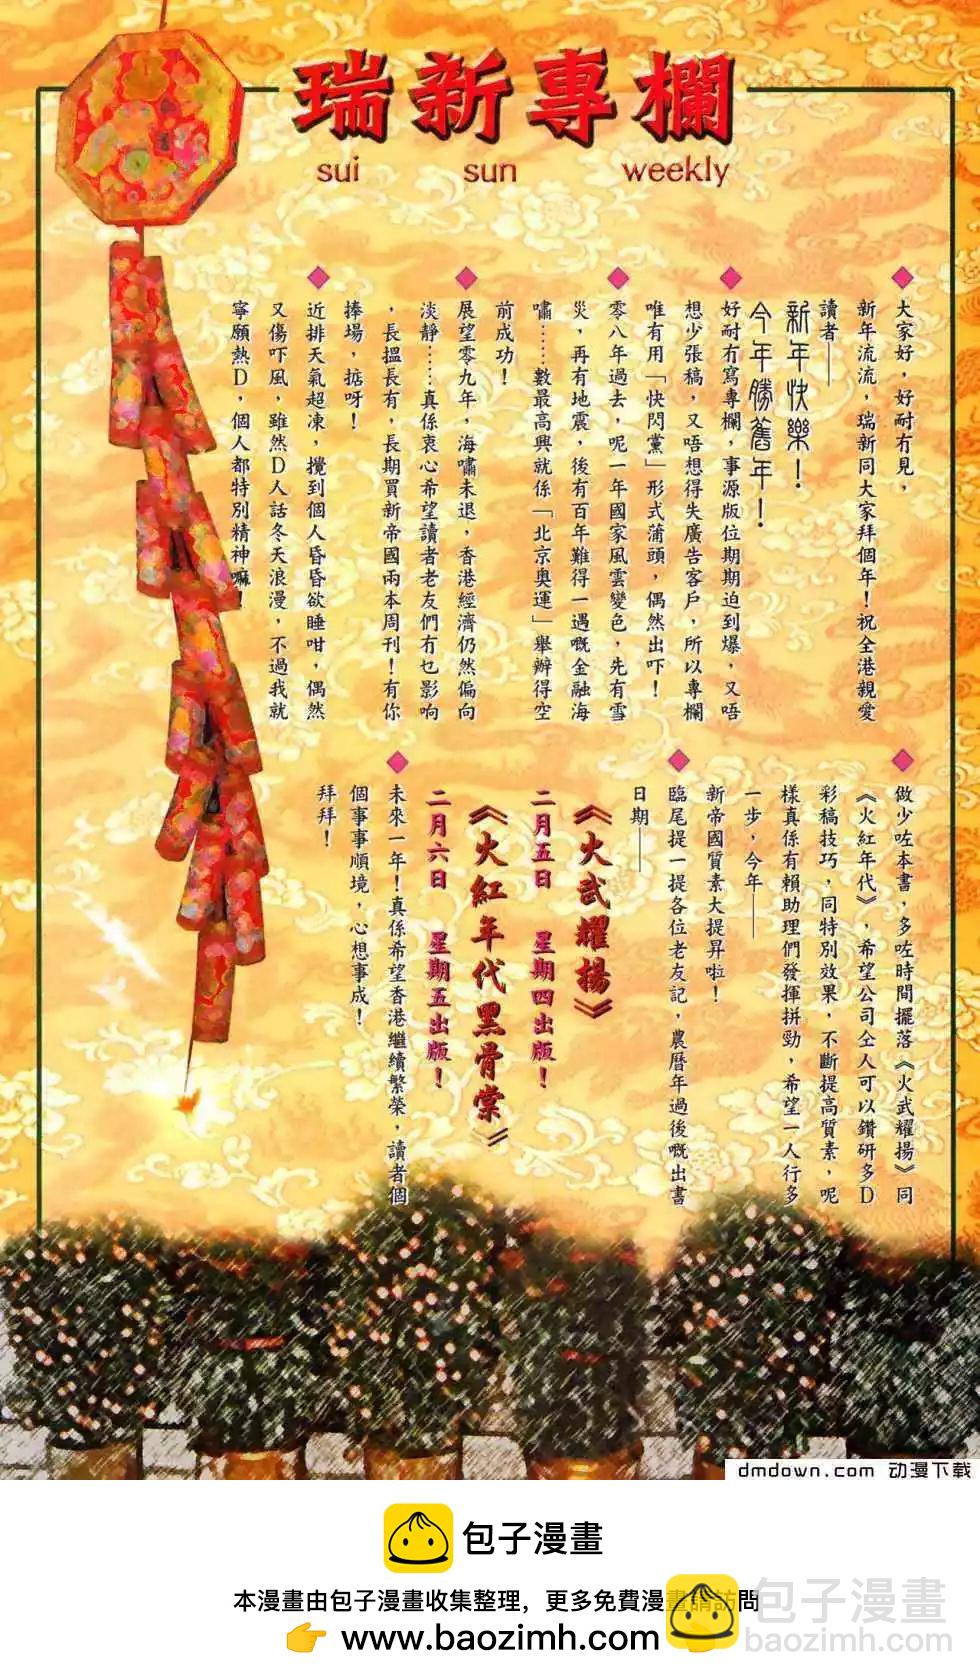 瑞新專欄
sui sun weekly
大家好，好耐冇見，
新年流流，瑞新同大家拜個年！祝全港親愛
讀者——
新年快樂！
今年勝舊年！
好耐冇寫專欄，事源版位期期迫到爆，又唔
想少張稿，又唔想得失廣告客戶，所以專欄
唯有用「快閃黨」形式蒲頭，偶然出吓！
零八年過去，呢一年國家風雲變色，先有雪
災，再有地震，後有百年難得一遇嘅金融海
嘯……數最高興就係「北京奧運」舉辦得空
前成功！
展望零九年，海嘯未退，香港經濟仍然偏向
淡靜……真係衷心希望讀者老友們冇乜影响
，長搵長有，長期買新帝國兩本周刊！有你
捧場，掂呀！
近排天氣超凍，攪到個人昏昏欲睡咁，偶然
又傷吓風，雖然D人話冬天浪漫，不過我就
寧願熱D，個人都特別精神嘛！
做少咗本書，多咗時間擺落《火武耀揚》同
《火紅年代》，希望公司仝人可以鑽研多D
彩稿技巧，同特別效果，不斷提高質素，呢
樣真係有賴助理們發揮拼勁，希望一人行多
一步，今年——
新帝國質素大提昇啦！
臨尾提一提各位老友記，農曆年過後嘅出書
日期——
《火武耀揚》
二月五日 星期四出版！
《火紅年代黑骨棠》
二月六日 星期五出版！
未來一年！真係希望香港繼續繁榮，讀者個
個事事順境，心想事成！
拜拜！
dmdown.com 动漫下载
包子漫畫
本漫畫由包子漫畫收集整理，更多免費漫畫請訪問
www.baozimh.com
包子漫畫
baozimh.com